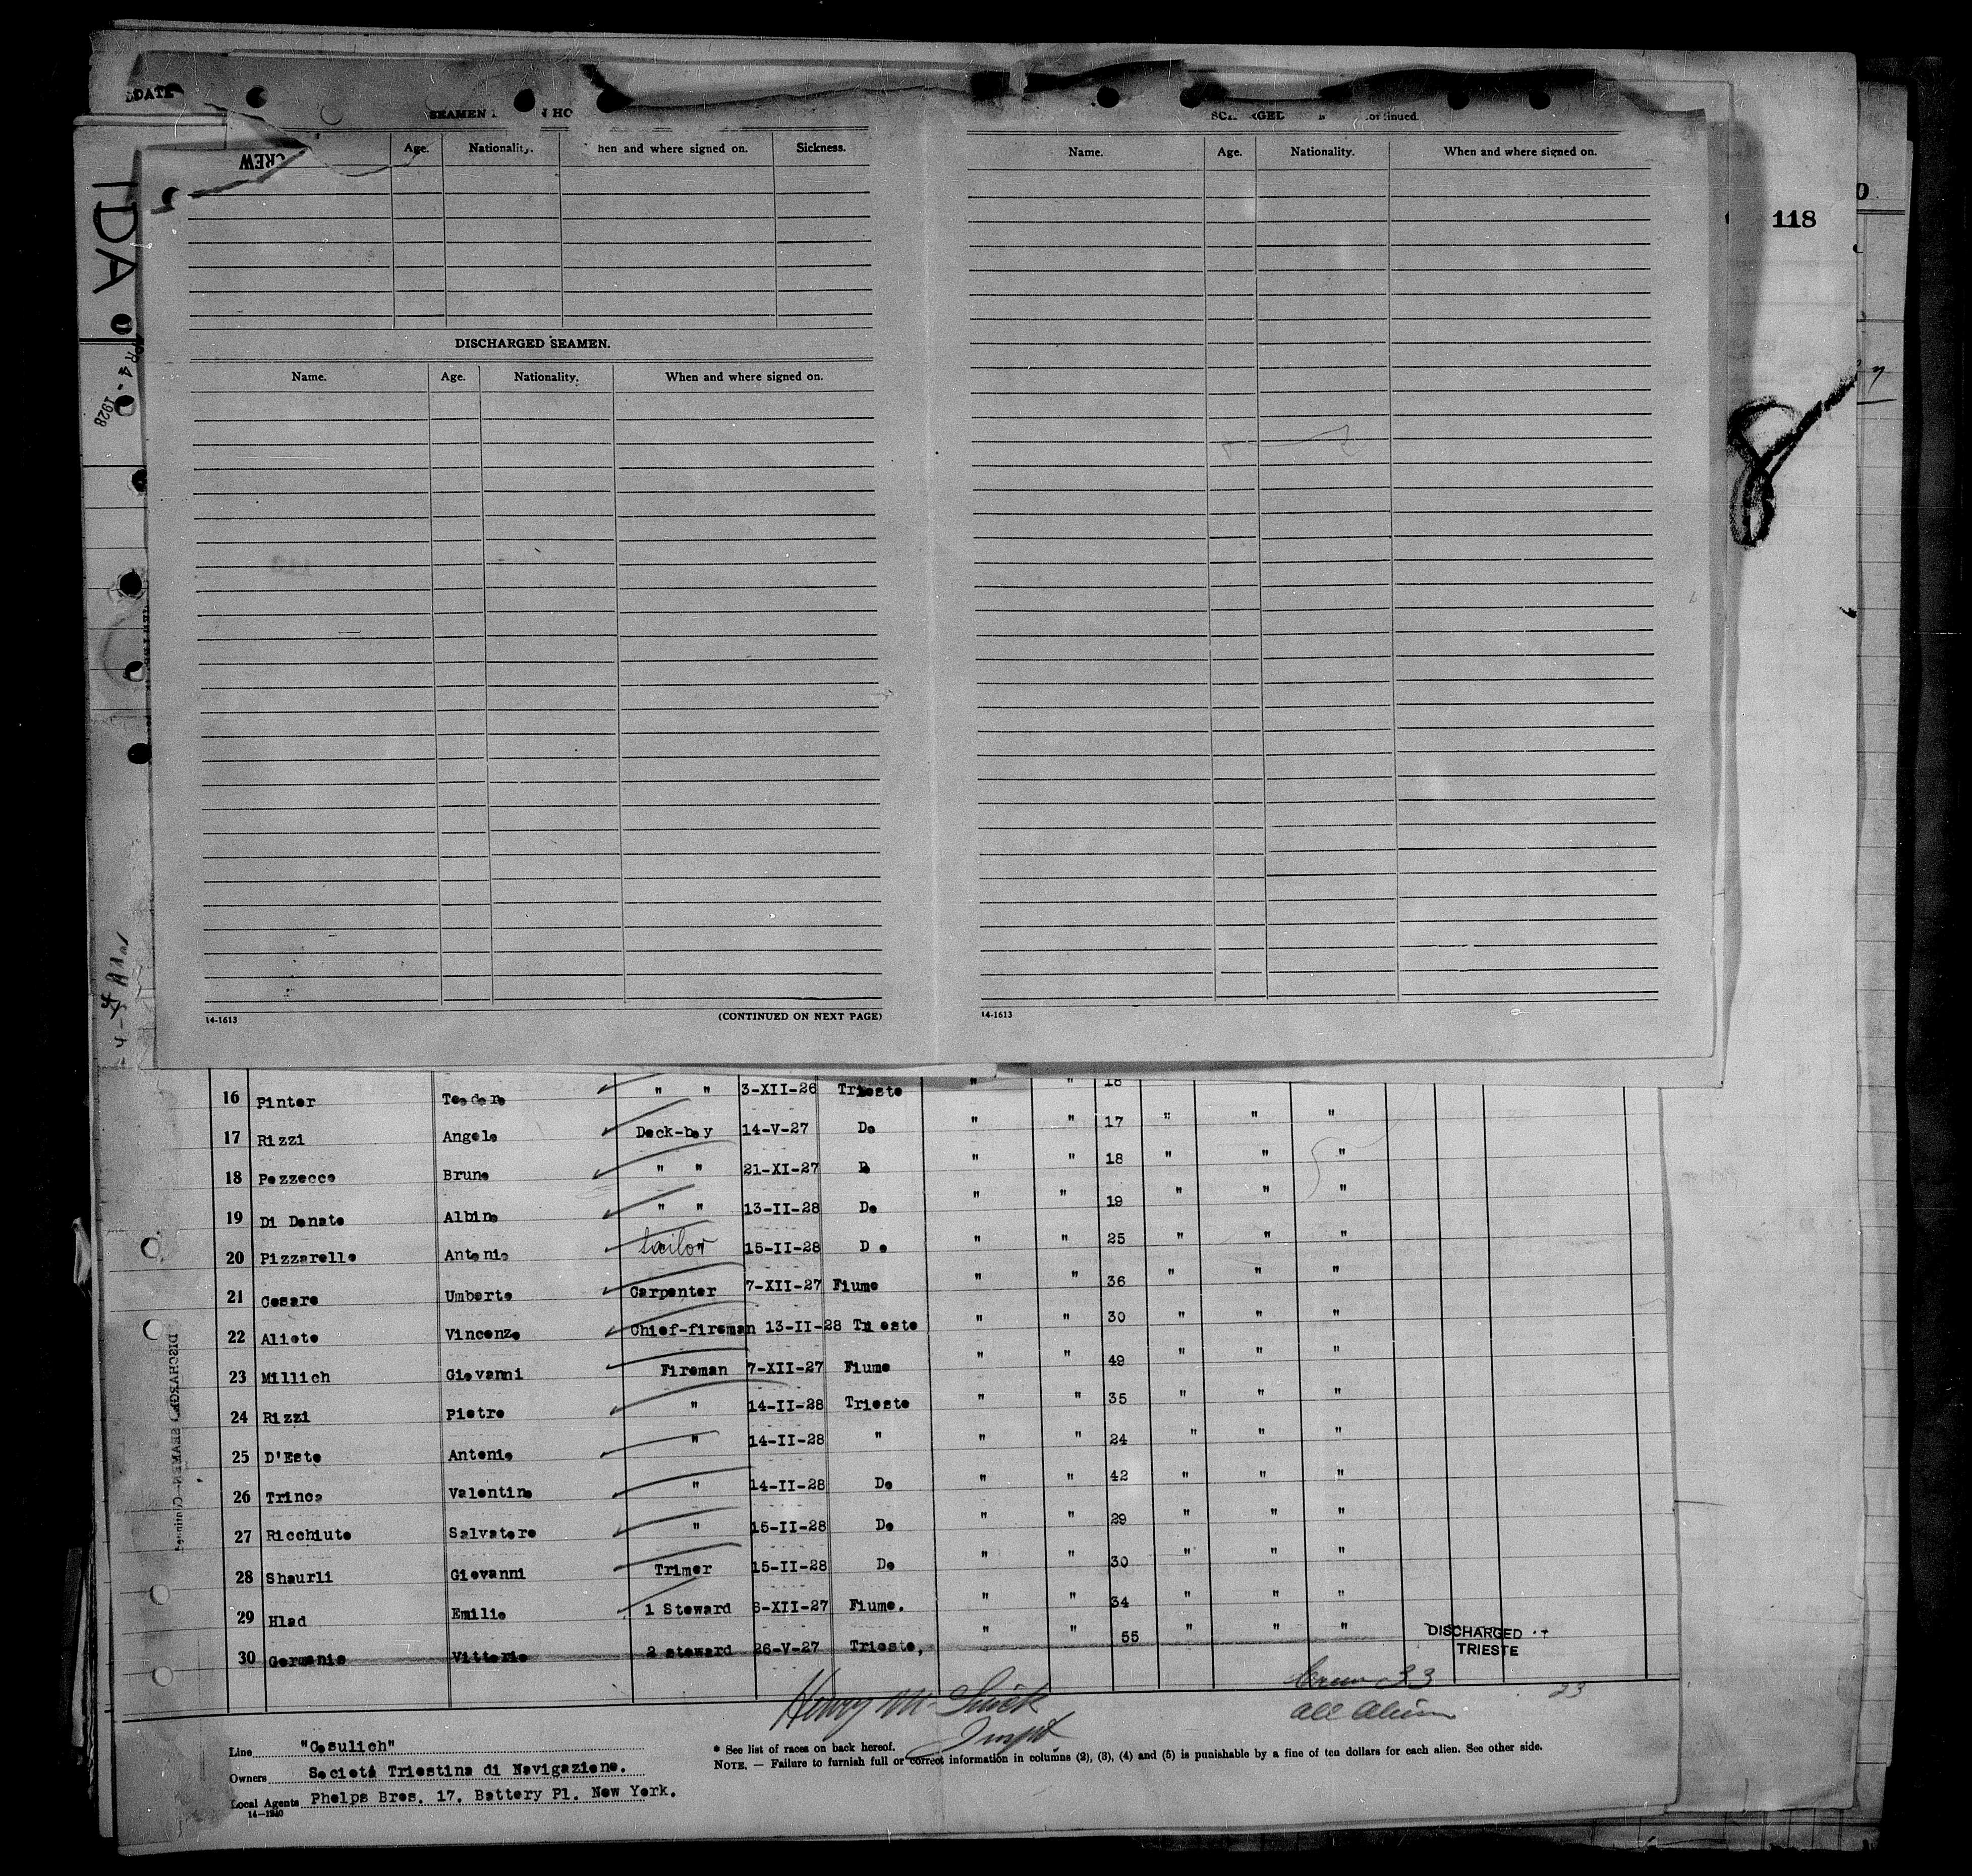 DATE
CREW
IDA
APR 4 - 1928
118
Age. Nationality. hen and where signed on. Sickness.
DISCHARGED SEAMEN.
Name. Age. Nationality. When and where signed on.
14-1613 (CONTINUED ON NEXT PAGE)
Name. Age. Nationality. When and where signed on.
14-1613
16 Pinter Teodoro " " 3-XII-26 Trieste " " 18
17 Rizzi Angelo Deck-boy 14-V-27 Do " " 17 " " "
18 Pozzecco Bruno " " 21-XI-27 D " " 18 " " "
19 Di Donato Albino " " 13-II-28 Do " " 19 " " "
20 Pizzarello Antonio Sailor 15-II-28 Do " " 25 " " "
21 Cesare Umberto Carpenter 7-XII-27 Fiume " " 36 " " "
22 Alioto Vincenzo Chief-fireman 13-II-28 Trieste " " 30 " " "
23 Millich Giovanni Fireman 7-XII-27 Fiume " " 49 " " "
24 Rizzi Pietro " 14-II-28 Trieste " " 35 " " "
25 D'Este Antonio " 14-II-28 " " " 24 " " "
26 Trinca Valentino " 14-II-28 Do " " 42 " " "
27 Ricchiuto Salvatore " 15-II-28 Do " " 29 " " "
28 Shaurli Giovanni Trimer 15-II-28 Do " " 30 " " "
29 Hlad Emilio 1 Steward 6-XII-27 Fiume. " " 34 " " "
30 Germanis Vittorio 2 steward 26-V-27 Trieste, " " 55 " " " DISCHARGED
TRIESTE
Crew 33
all Alien
23
Line "Cosulich"
Owners Societá Triestina di Navigazione.
Local Agents Phelps Bros. 17, Battery Pl. New York.
14-1240
* See list of races on back hereof.
NOTE. — Failure to furnish full or correct information in columns (2), (3), (4) and (5) is punishable by a fine of ten dollars for each alien. See other side.